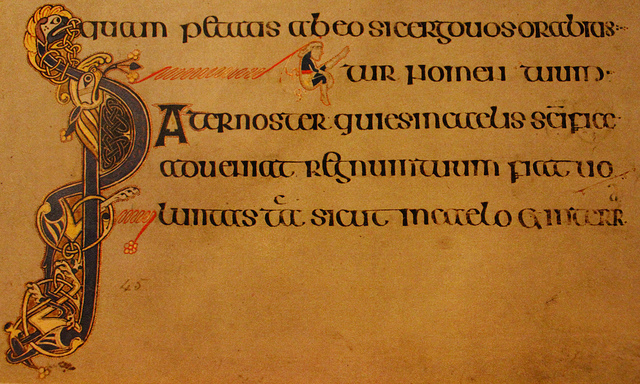 quam petatis ab eo sic ergo uos orabitis
tur nomen tuum
Pater noster qui es in caelis scifice
adueniat regnum tuum fiat uo
luntas tā sicut in caelo & in terr
45